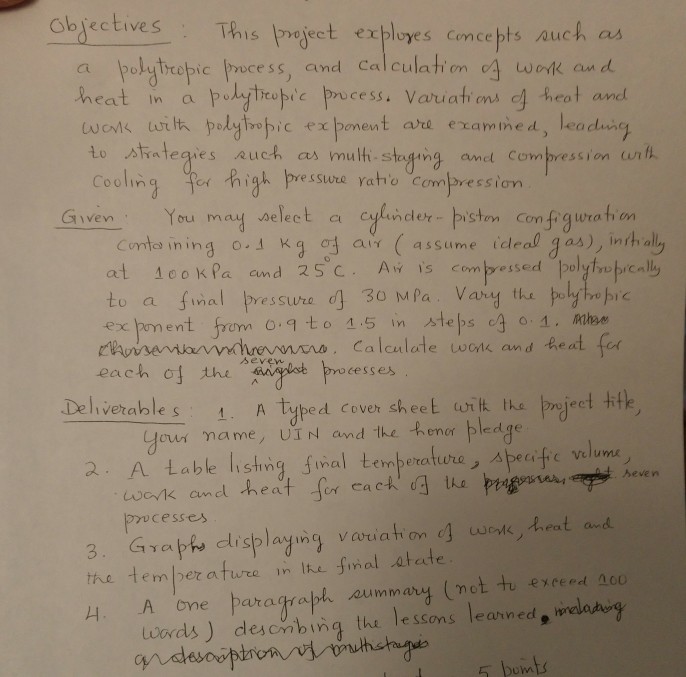 Objectives : This project explores concepts such as
a polytropic process, and calculation of work and
heat in a polytropic process. Variations of heat and
work with polytropic exponent are examined, leading
to strategies such as multi-staging and compression with
cooling for high pressure ratio compression.
Given : You may select a cylinder-piston configuration
containing 0.1 kg of air (assume ideal gas), initially
at 100 kPa and 25°C. Air is compressed polytropically
to a final pressure of 30 MPa. Vary the polytropic
exponent from 0.9 to 1.5 in steps of 0.1.
Calculate work and heat for
each of the seven processes.
Deliverables : 1. A typed cover sheet with the project title,
your name, UIN and the honor pledge.
2. A table listing final temperature, specific volume,
work and heat for each of the seven
processes.
3. Graphs displaying variation of work, heat and
the temperature in the final state.
4. A one paragraph summary (not to exceed 200
words) describing the lessons learned.
5 points